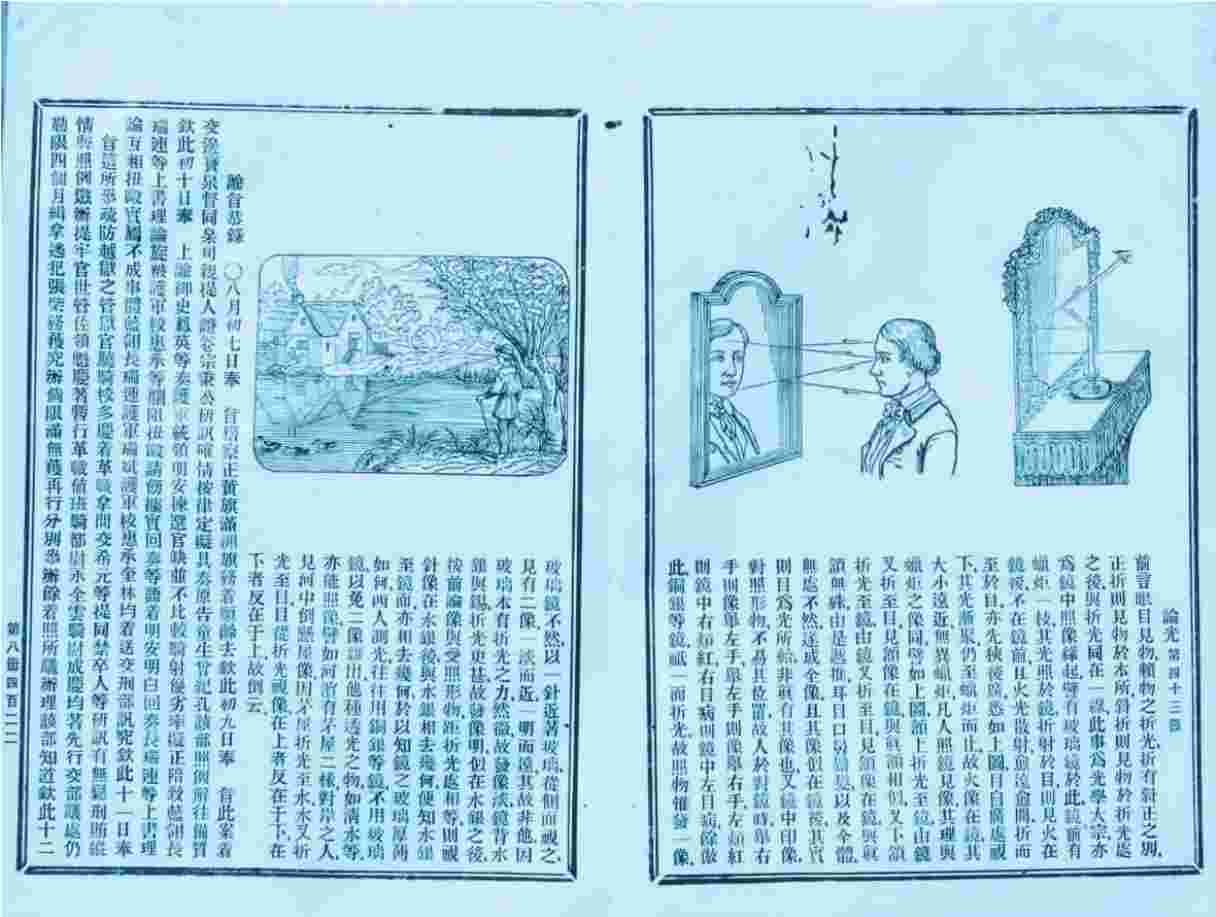 論光第四十三課
前言眼目見物賴物之折光折有斜正之別
正折則見物於本所斜折則見物於折光處
之後與折光同在一線此事爲光學大宗亦
爲鏡中照像緣起譬有玻璃鏡於此鏡前有
蠟炬一枝其光照於鏡折射於目則見火在
鏡後不在鏡前且火光散射愈遠愈闊折而
至於目亦先狹後廣悉如上圖目自廣處視
下其光漸聚仍至蠟炬而止故火像在鏡其
大小遠近無異蠟炬凡人照鏡見像其理與
蠟炬之像同譬如上圖額上折光至鏡由鏡
又折至目見額像在鏡與眞額相似又下頷
折光至鏡由鏡又折至目見頷像在鏡與眞
頷無殊由是遞推耳目口鼻以及全體
無處不然遂成全像且其像似在鏡後其實
則目爲光所紿非眞有其像也又鏡中印像
對照形物不易其位置故人於對鏡時舉右
手則像舉左手舉左手則像舉右手左頰紅
則鏡中右頰紅右目病則鏡中左目病餘倣
此銅銀等鏡祇一面折光故照物僅發一像
玻璃鏡不然以一針近著玻璃從側面視之
見有二像一淡而近一明而遠其故非他因
玻璃本有折光之力然微故發像淡鏡背水
銀與錫折光更甚故發像明似在水銀之後
按前論像與受照形物距折光處相等則視
針像在水銀後與水銀相去幾何便知水銀
至鏡面亦相去幾何於以知鏡之玻璃厚薄
如何西人測光往往用銅銀等鏡不用玻璃
鏡以免二像雜出他種透光之物如清水等
亦能照像譬如河濱有茅屋二椽對岸之人
見河中倒懸屋像因茅屋折光至水水又折
光至目目從折光視像在上者反在于下在
下者反在于上故倒云
諭旨恭錄 〇八月初七日奉 旨
欽此初十日奉 上諭御史鳳英等奏護軍統領明安揀選官缺並不比較騎射優劣率擬正陪致藍翎長
瑞連等上書理論旋被護軍校惠承等攔阻扭毆請飭據實回奏等語着明安明白回奏長瑞連等上書理
論互相扭毆實屬不成事體藍翎長瑞連護軍瑞斌護軍校惠承全林均着送交刑部訊究欽此十一日奉
旨這所參疏防越獄之管獄官驍騎校多慶着革職拿問交希元等提同禁卒人等研訊有無鬆刑賄縱
情弊照例懲辦提牢官世管佐領慶著暫行革職值班騎都尉永全雲騎尉成慶均著先行交部議處仍
勒限四個月緝拿逃犯張務獲究辦倘限滿無獲再行分別參辦餘着照所議辦理該部知道欽此十二
第八冊四百二二